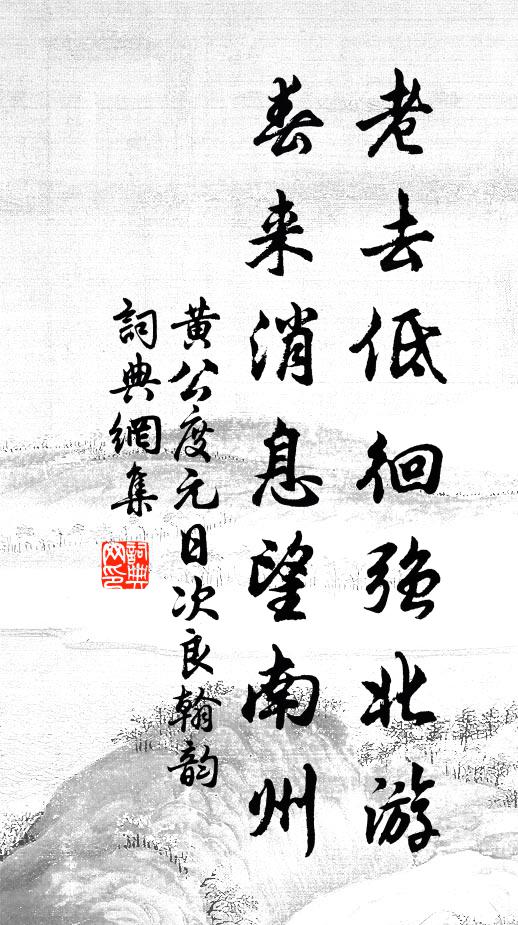 老去低徊強北游
春来消息望南州
黄公度元日次良翰韵
詞典網集
詞典
网印